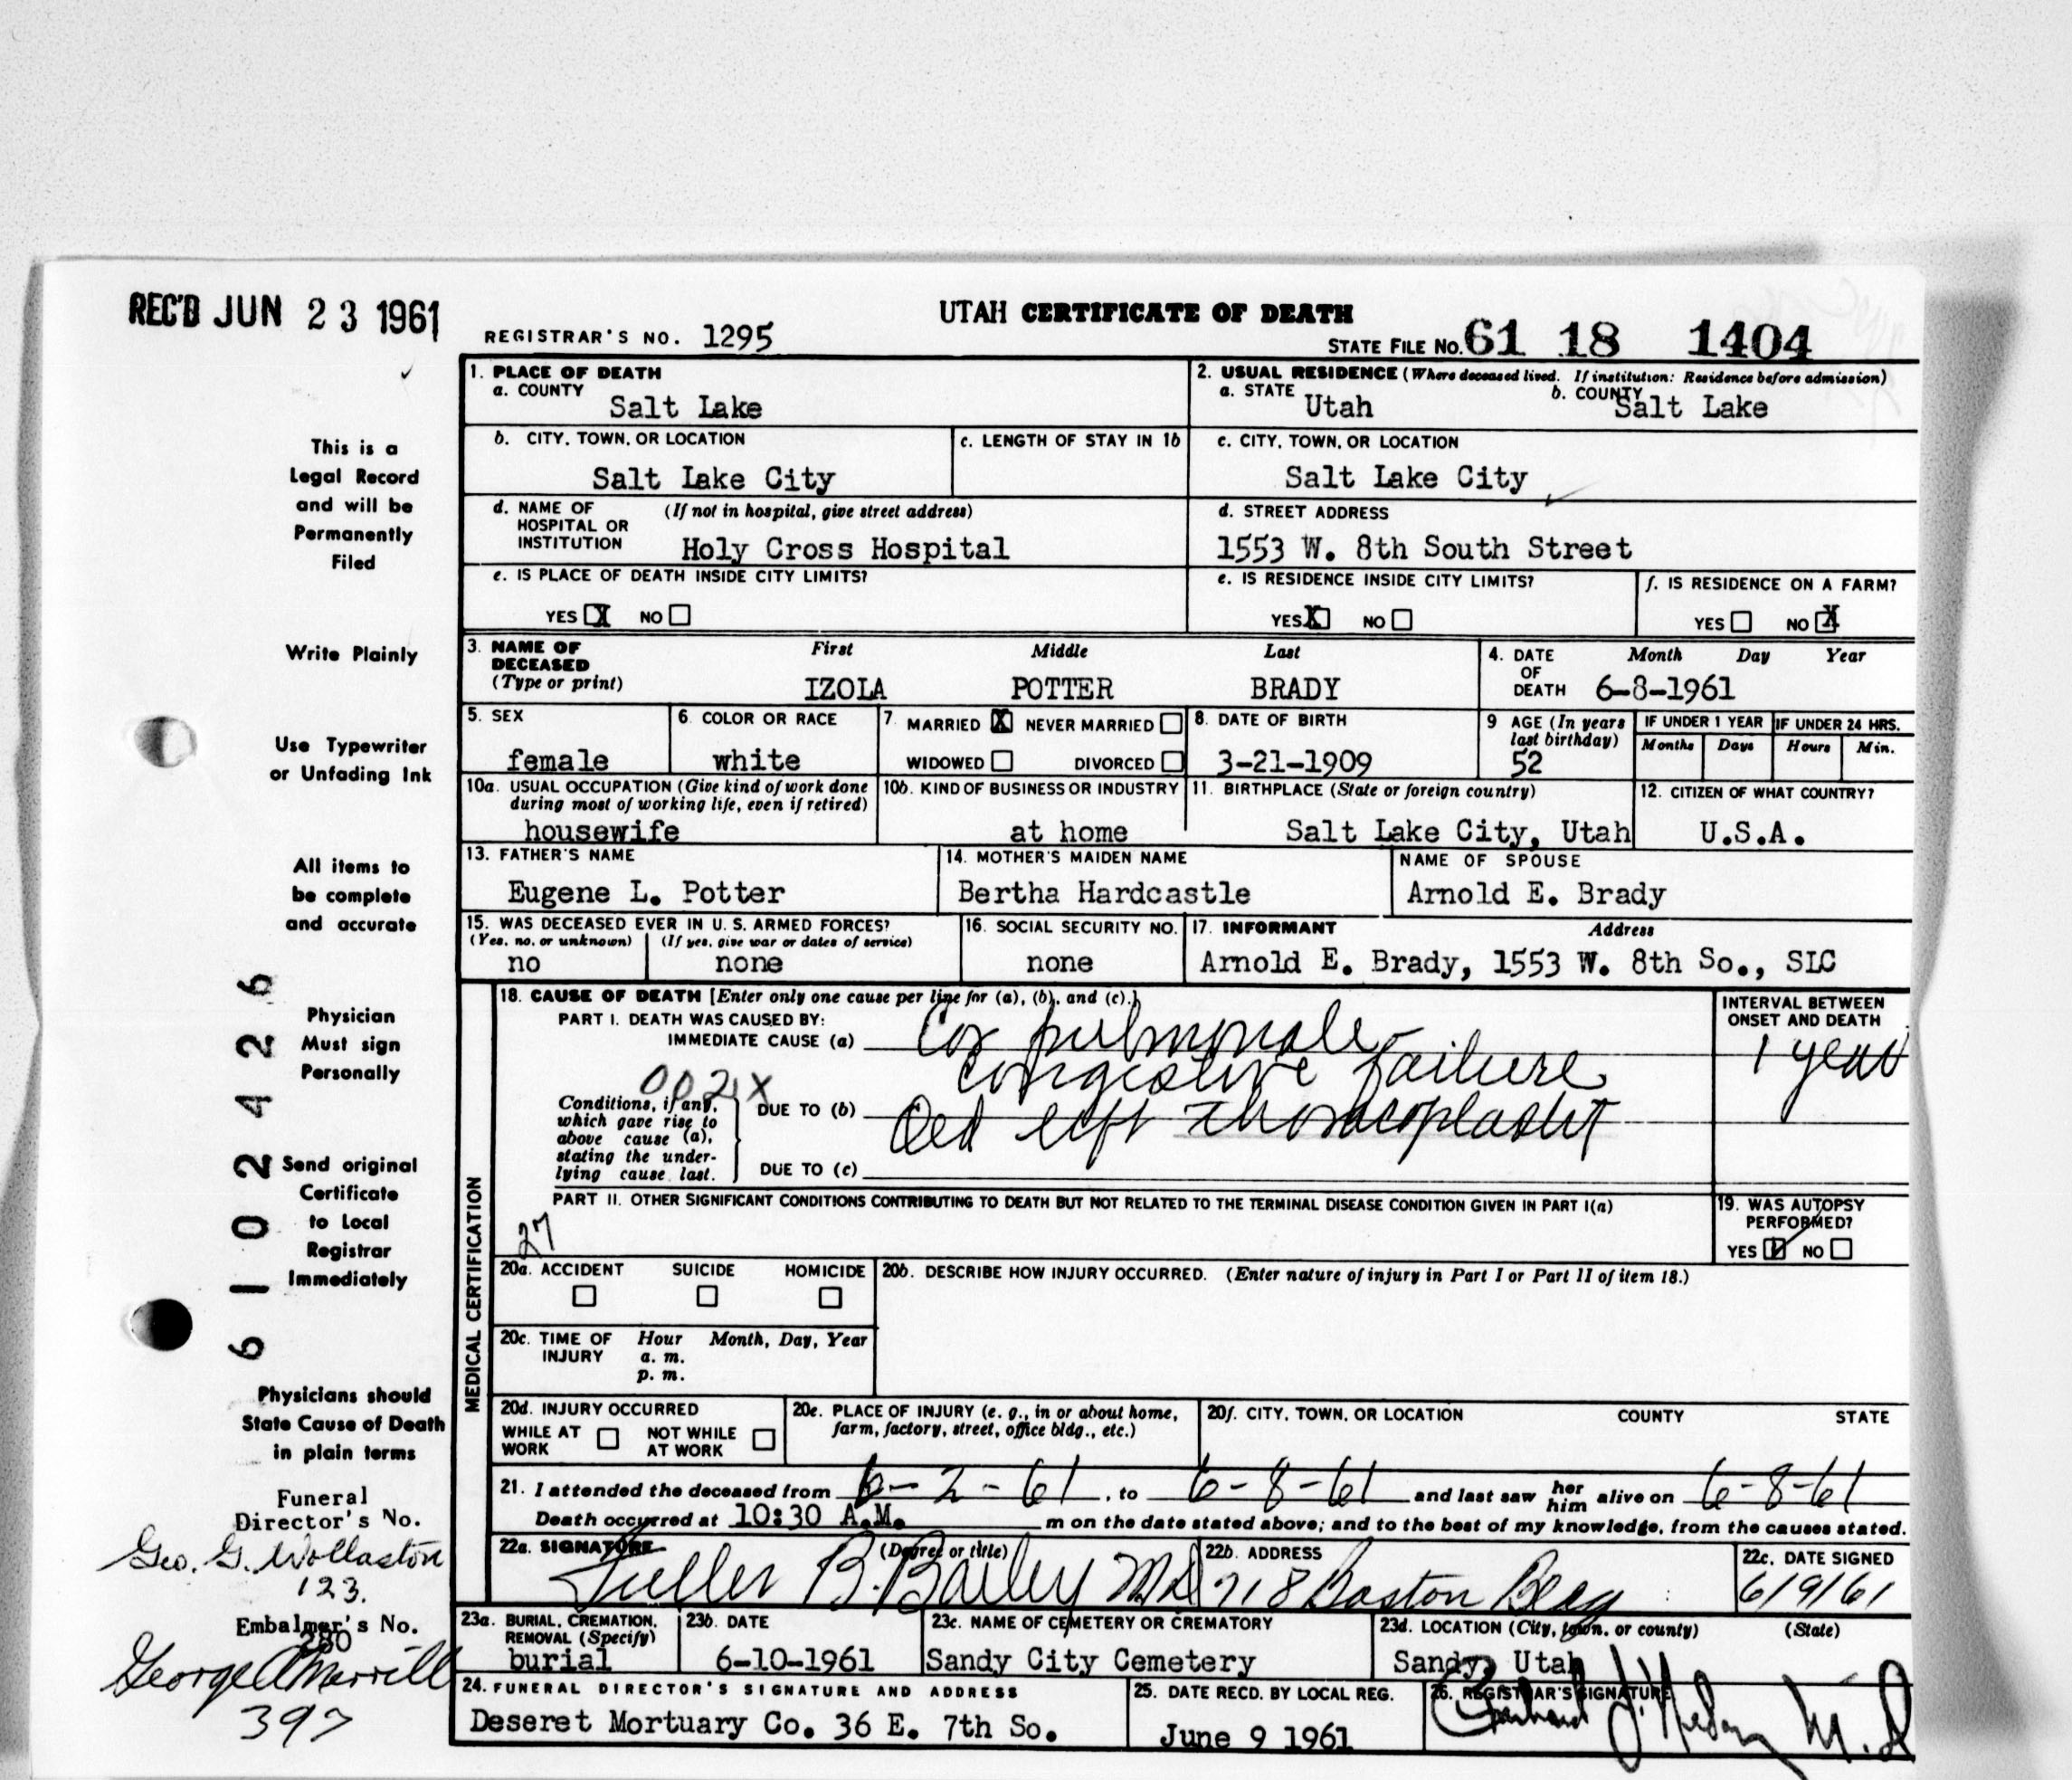 REC'D JUN 23 1961
UTAH CERTIFICATE OF DEATH
REGISTRAR'S NO. 1295
STATE FILE NO. 61 18 1404
This is a
Legal Record
and will be
Permanently
Filed
Write Plainly
Use Typewriter
or Unfading Ink
All items to
be complete
and accurate
Physician
Must sign
Personally
Send original
Certificate
to Local
Registrar
Immediately
Physicians should
State Cause of Death
in plain terms
Funeral
Director's No.
Geo. G. Wollaston
123.
Embalmer's No.
380
George A Merrill
397
61022426
1. PLACE OF DEATH
a. COUNTY
Salt Lake
2. USUAL RESIDENCE (Where deceased lived. If institution: Residence before admission)
a. STATE Utah b. COUNTY Salt Lake
b. CITY, TOWN, OR LOCATION
Salt Lake City
c. LENGTH OF STAY IN 1b
c. CITY, TOWN, OR LOCATION
Salt Lake City
d. NAME OF HOSPITAL OR INSTITUTION (If not in hospital, give street address)
Holy Cross Hospital
d. STREET ADDRESS
1553 W. 8th South Street
e. IS PLACE OF DEATH INSIDE CITY LIMITS?
YES X NO
e. IS RESIDENCE INSIDE CITY LIMITS?
YES X NO
f. IS RESIDENCE ON A FARM?
YES NO X
3. NAME OF DECEASED (Type or print)
First Middle Last
IZOLA POTTER BRADY
4. DATE OF DEATH Month Day Year
6-8-1961
5. SEX
female
6. COLOR OR RACE
white
7. MARRIED X NEVER MARRIED
WIDOWED DIVORCED
8. DATE OF BIRTH
3-21-1909
9 AGE (In years last birthday)
52
IF UNDER 1 YEAR IF UNDER 24 HRS.
Months Days Hours Min.
10a. USUAL OCCUPATION (Give kind of work done during most of working life, even if retired)
housewife
10b. KIND OF BUSINESS OR INDUSTRY
at home
11. BIRTHPLACE (State or foreign country)
Salt Lake City, Utah
12. CITIZEN OF WHAT COUNTRY?
U.S.A.
13. FATHER'S NAME
Eugene L. Potter
14. MOTHER'S MAIDEN NAME
Bertha Hardcastle
NAME OF SPOUSE
Arnold E. Brady
15. WAS DECEASED EVER IN U. S. ARMED FORCES?
(Yes, no, or unknown) (If yes, give war or dates of service)
no none
16. SOCIAL SECURITY NO.
none
17. INFORMANT Address
Arnold E. Brady, 1553 W. 8th So., SLC
MEDICAL CERTIFICATION
18. CAUSE OF DEATH [Enter only one cause per line for (a), (b), and (c).]
PART I. DEATH WAS CAUSED BY:
IMMEDIATE CAUSE (a) Cor pulmonale
congestive failure
002X
Conditions, if any, which gave rise to above cause (a), stating the underlying cause last.
DUE TO (b) Old left thoracoplasty
DUE TO (c)
INTERVAL BETWEEN ONSET AND DEATH
1 year
PART II. OTHER SIGNIFICANT CONDITIONS CONTRIBUTING TO DEATH BUT NOT RELATED TO THE TERMINAL DISEASE CONDITION GIVEN IN PART I(a)
27
19. WAS AUTOPSY PERFORMED?
YES NO
20a. ACCIDENT SUICIDE HOMICIDE
20b. DESCRIBE HOW INJURY OCCURRED. (Enter nature of injury in Part I or Part II of item 18.)
20c. TIME OF INJURY Hour Month, Day, Year
a. m.
p. m.
20d. INJURY OCCURRED
WHILE AT WORK NOT WHILE AT WORK
20e. PLACE OF INJURY (e. g., in or about home, farm, factory, street, office bldg., etc.)
20f. CITY, TOWN, OR LOCATION COUNTY STATE
21. I attended the deceased from 6-2-61, to 6-8-61 and last saw her him alive on 6-8-61
Death occurred at 10:30 A.M. m on the date stated above; and to the best of my knowledge, from the causes stated.
22a. SIGNATURE (Degree or title)
Fuller B. Bailey MD
22b. ADDRESS
718 Boston Bldg
22c. DATE SIGNED
6/9/61
23a. BURIAL, CREMATION, REMOVAL (Specify)
burial
23b. DATE
6-10-1961
23c. NAME OF CEMETERY OR CREMATORY
Sandy City Cemetery
23d. LOCATION (City, town, or county) (State)
Sandy, Utah
24. FUNERAL DIRECTOR'S SIGNATURE AND ADDRESS
Deseret Mortuary Co. 36 E. 7th So.
25. DATE RECD. BY LOCAL REG.
June 9 1961
26. REGISTRAR'S SIGNATURE
M.D